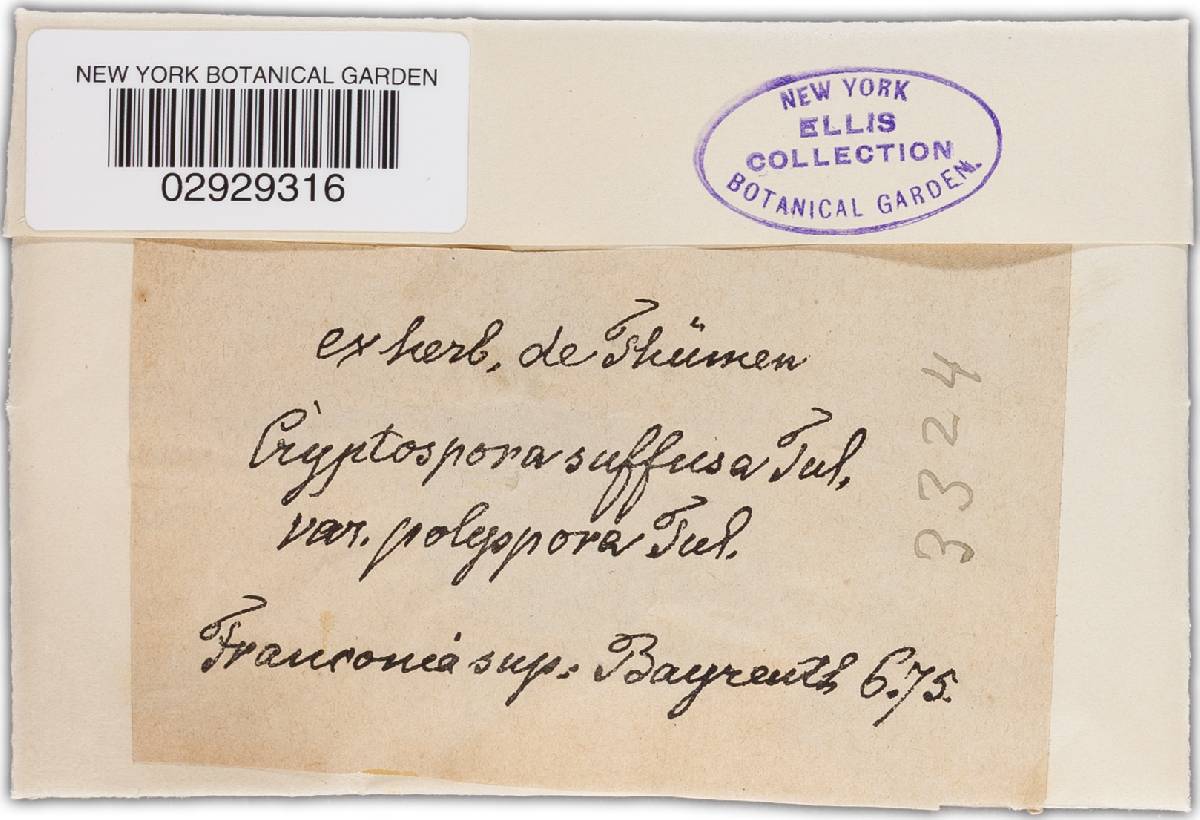 NEW YORK BOTANICAL GARDEN
02929316
NEW YORK
ELLIS
COLLECTION
BOTANICAL GARDEN.
ex herb. de Thümen
Cryptospora suffusa Tul.
var. polyspora Tul.
Franconia sup. Bayreuth 6.75.
3324